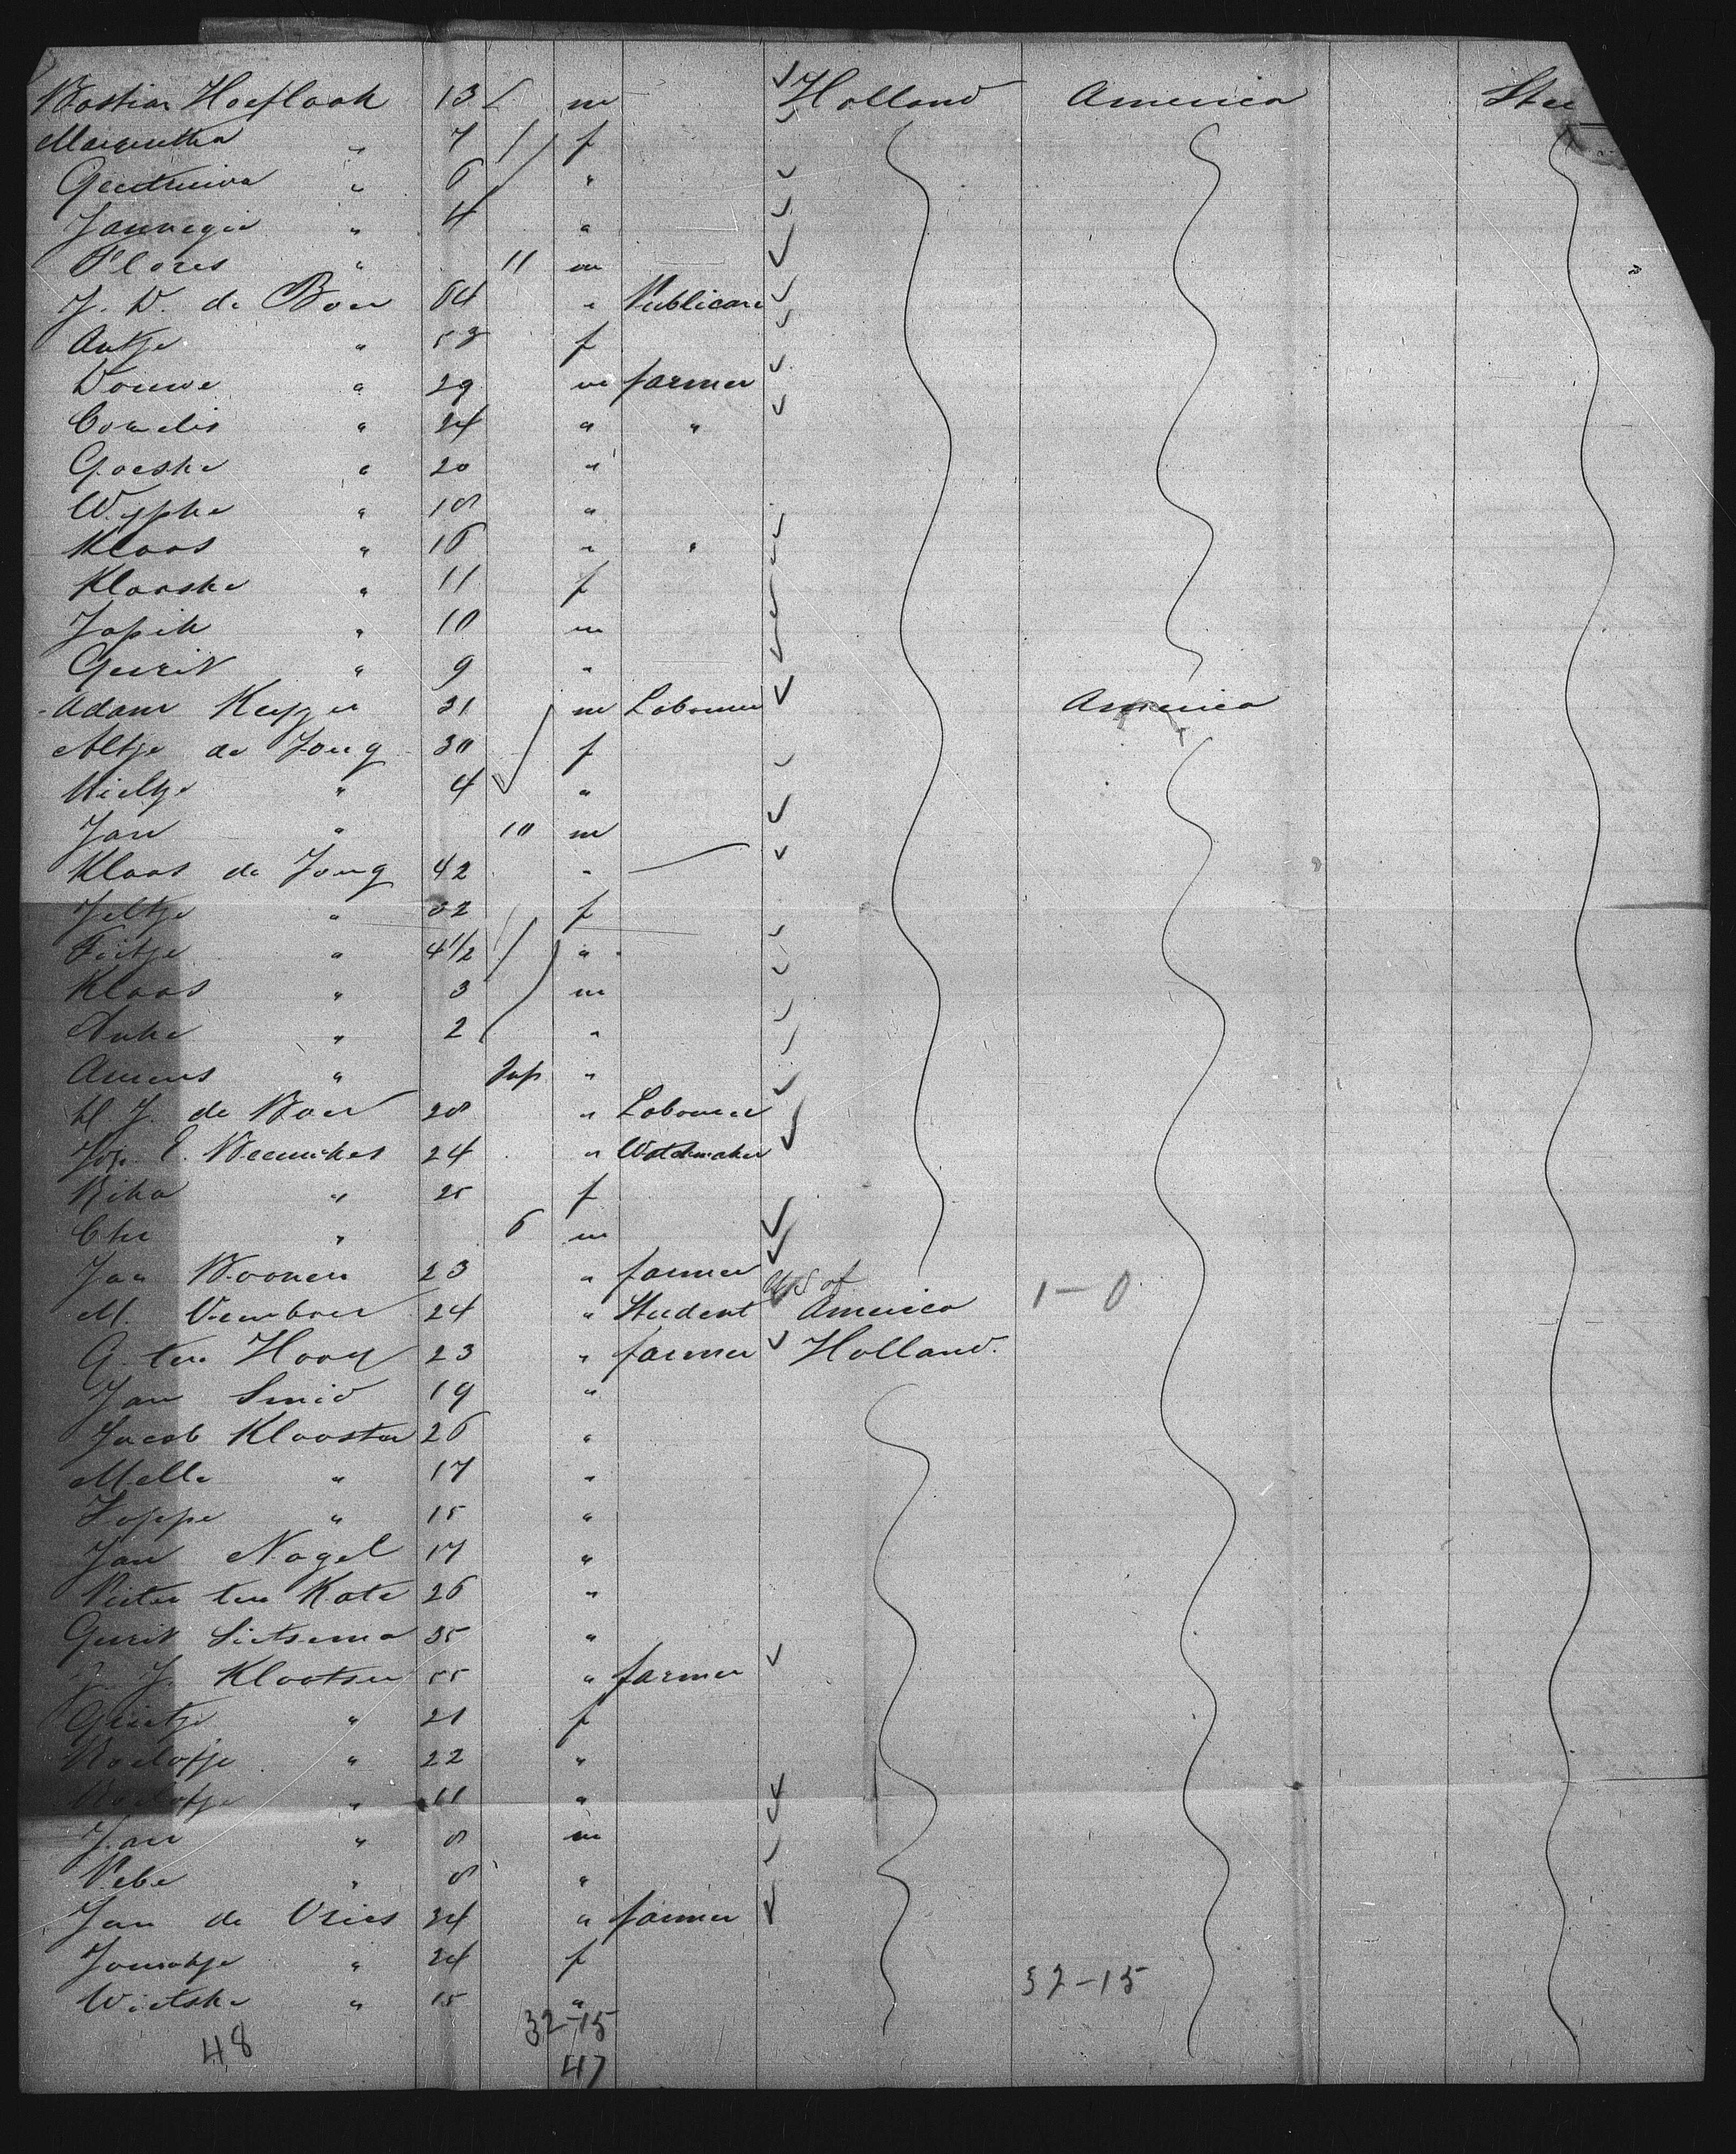 Bastian Hoeflaak 13 m Holland America Stee
Margretha " 7 f
Geertruida " 6 "
Jannegie " 4 "
Flores " 11 m
J. D. de Boer 54 " Publican
Antje " 53 f
Douwe " 29 m farmer
Cornelis " 24 " "
Goeske " 20 "
Wypke " 18 "
Klaas " 16 " "
Klaaske " 11 f
Japik " 10 m
Gerrit " 9 "
Adam Keyzer 31 m Labourer America
Altje de Jong 30 f
Hieltje " 4 "
Jan " 10 m
Klaas de Jong 42 "
Jeltje " 32 f
Fietje " 4 1/2 "
Klaas " 3 m
Anke " 2 "
Amens " Inf "
H. J. de Boer 28 " Labourer
Jos. E. Beunkes 24 " Watchmaker
Rika " 25 f
Chr " 6 m
Jan Boonen 23 " farmer
M. 24 " Student U S of America 1-0
G. ten Hoory 23 " farmer Holland.
Jan Smid 19 "
Jacob Klooster 26 "
Melle " 17 "
Foppe " 15 "
Jan Nagel 17 "
Pieter ten Kate 26 "
Gerrit Sietsema 35 "
J. Klootser 55 " farmer
Grietje " 21 f
Roelofje " 22 "
Roelofje " 11 "
Jan " 8 m
Pebe " 8 "
Jan de Vries 34 " farmer
Jouwkje " 24 f
Wietske " 15 "
32-15
32-15
48
47